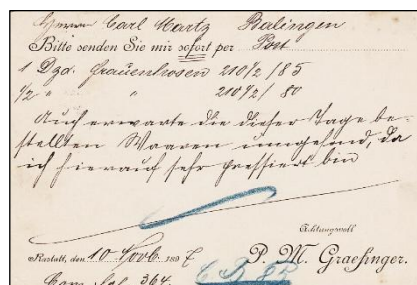 Herrn Carl Martz Balingen
Bitte senden Sie mir sofort per Post
1 Dzd. Frauenhosen 210½/85
½ " " 210½/80
Auch erwarte die dieser Tage be-
stellten Waaren umgehend, da
ich hierauf sehr pressiert bin
Achtungsvoll
Rastatt, den 10 Novb. 1897
P. M. Graefinger.
364.